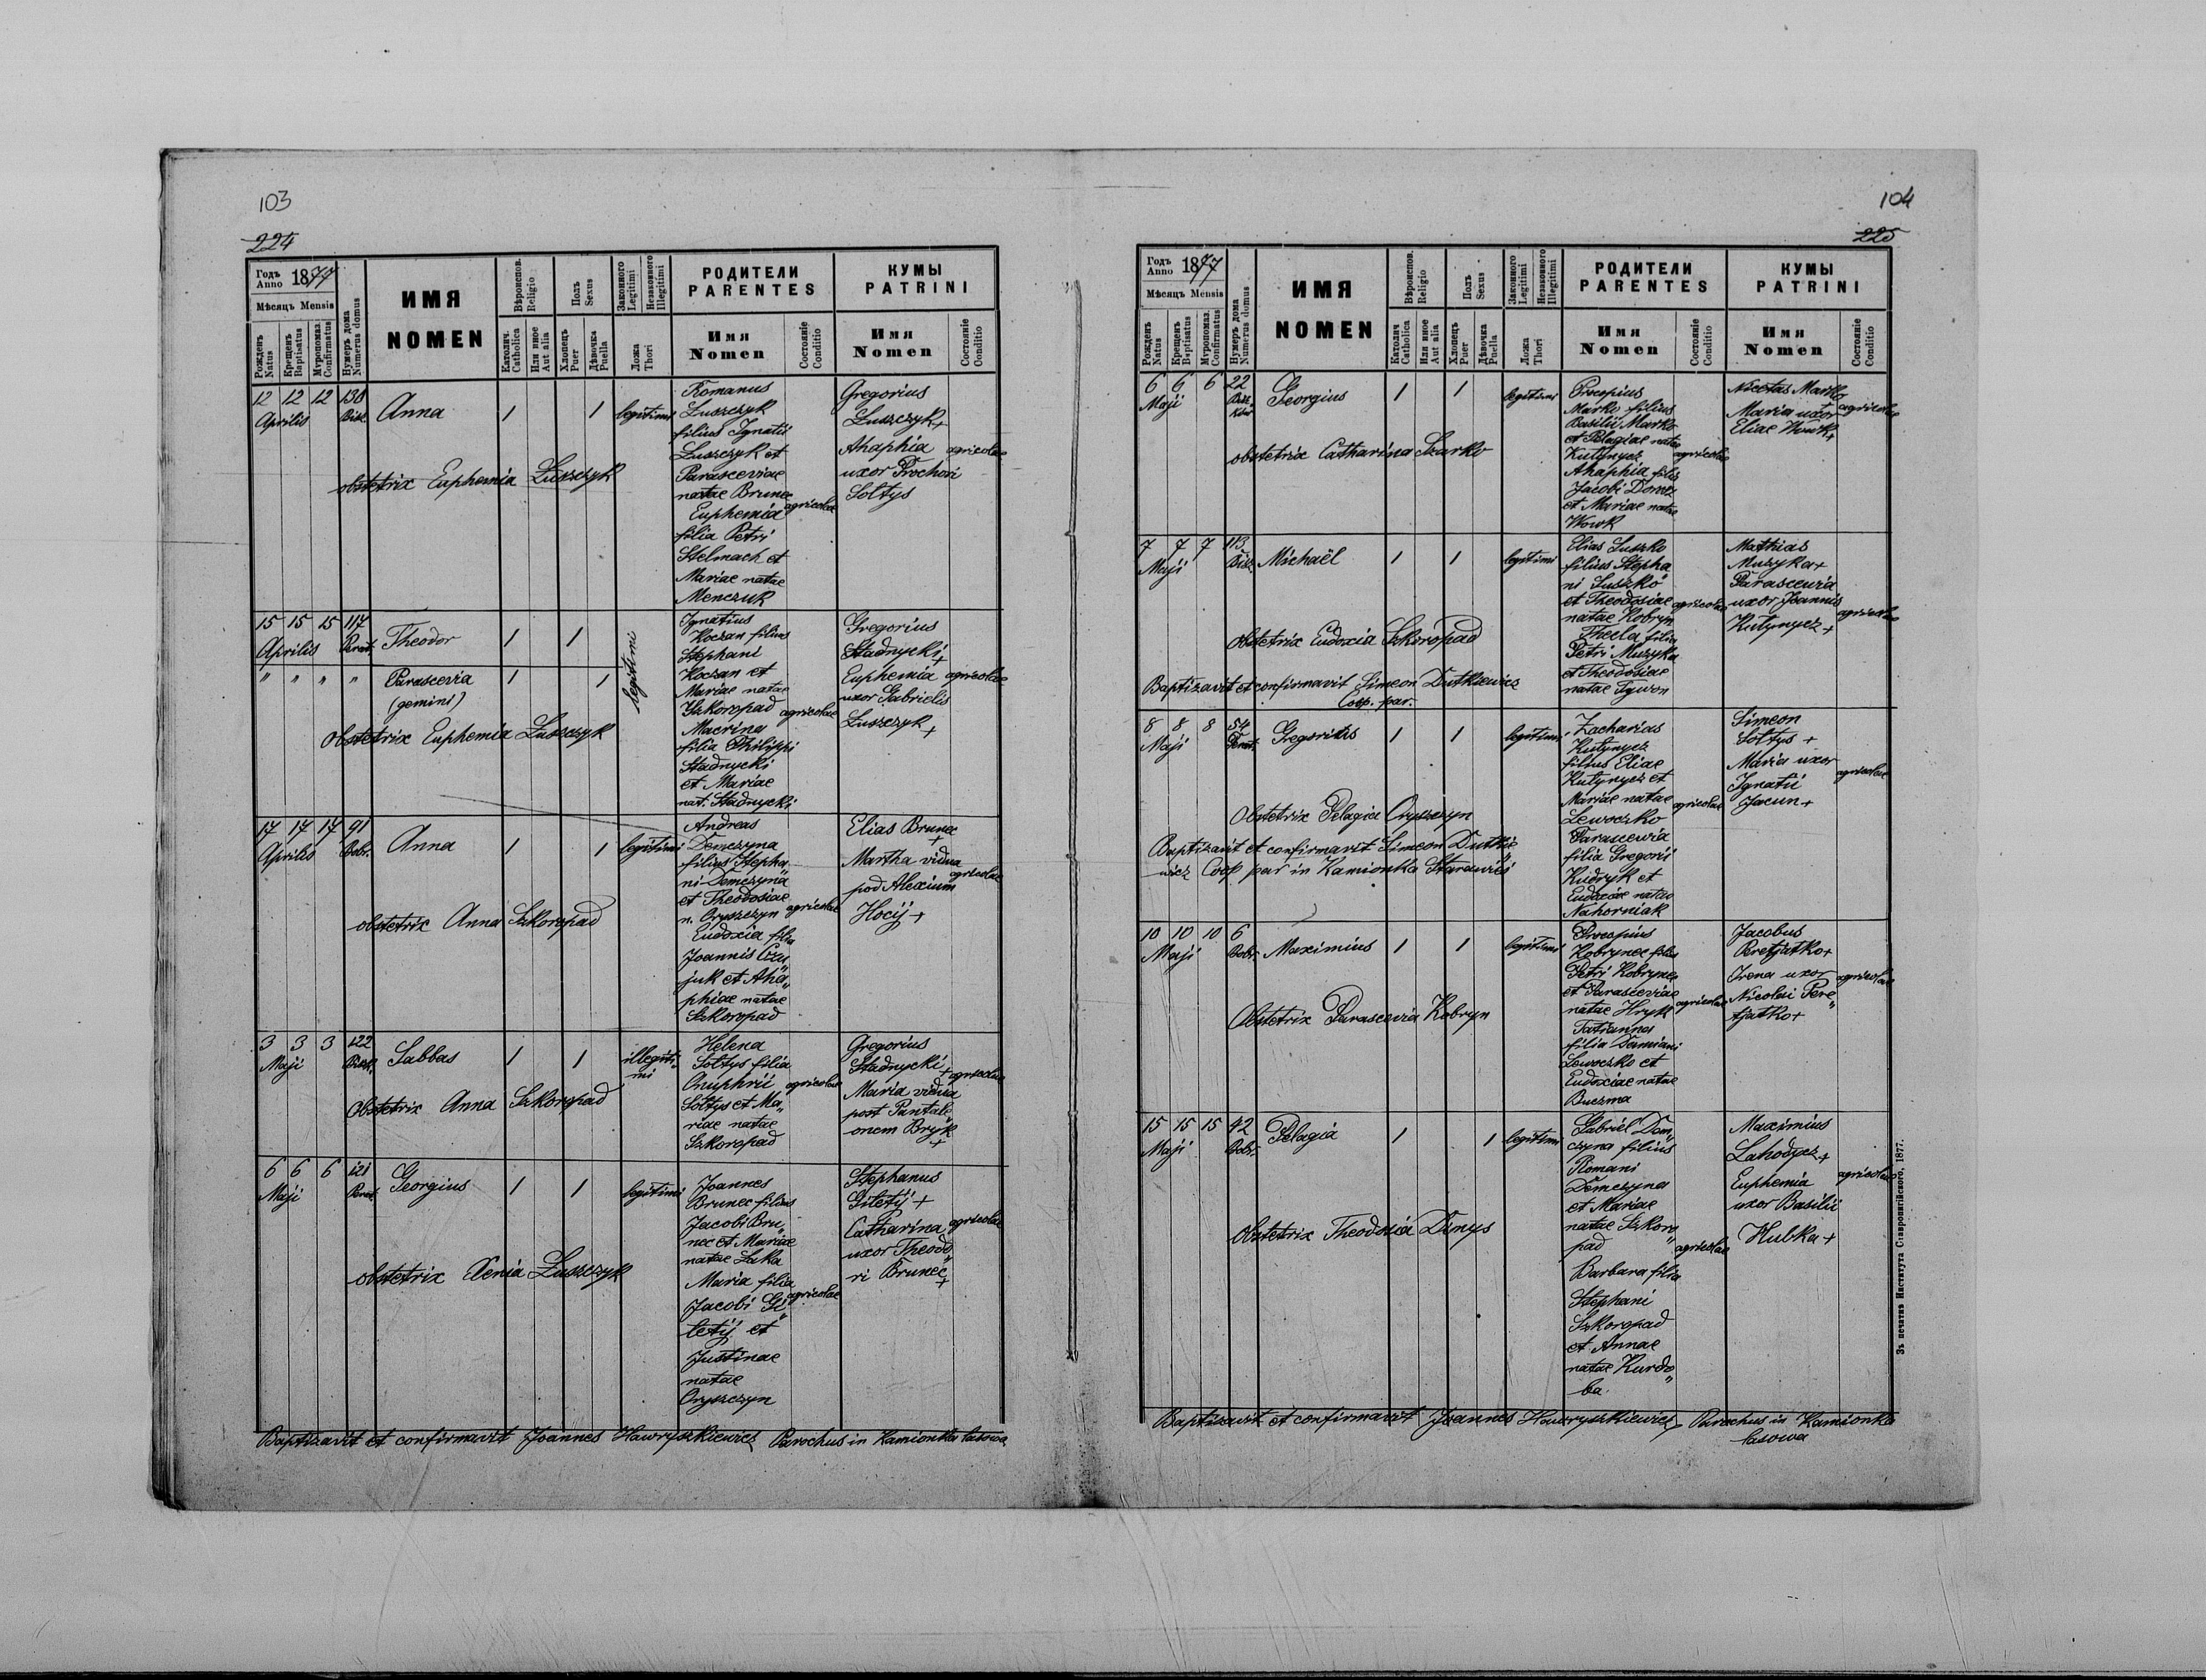 103
224
Годъ Anno 1877
Мѣсяцъ Mensis
Рожденъ Natus
Крещенъ Baptisatus
Муропомаз. Confirmatus
Нумеръ дома Numerus domus
ИМЯ
NOMEN
Вѣроисповѣд. Religio
Католич. Catholica
Или иное Aut alia
Полъ Sexus
Хлопецъ Puer
Дѣвочка Puella
Законного Legitimi
Незаконного Illegitimi
Ложа Thori
РОДИТЕЛИ
PARENTES
Имя
Nomen
Состоянiе Conditio
КУМЫ
PATRINI
Имя
Nomen
Состоянiе Conditio
12 12 12 138
Aprilis
Anna 1 1 legitimi
obstetrix Euphemia Luszczyk
Romanus
Luszczyk
filius Ignatii
Luszczyk et
Parasceviae
natae Brunec
Euphemia agricolae
filia Petri
Stelmach et
Mariae natae
Menczuk
Gregorius
Luszczyk +
Ahaphia agricolae
uxor Prochori
Soltys
15 15 15 117
Aprilis
Theodor 1 1 legitimi
" " " " Parascevia 1 1
(gemini)
Obstetrix Euphemia Luszczyk
Ignatius
Koczan filius
Stephani
Koczan et
Mariae natae
Szkoropad agricolae
Macrina
filia Philippi
Stadnycki
et Mariae
nat. Stadnycki
Gregorius
Stadnycki +
Euphemia agricolae
uxor Gabrielis
Luszczyk +
17 17 17 91
Aprilis Bobr.
Anna 1 1 legitimi
obstetrix Anna Szkoropad
Andreas
Demczyna
filius Stepha„
ni Demczyna
et Theodosiae
n. Oryszczyn agricolae
Eudoxia filia
Joannis Czu„
juk et Aha„
phiae natae
Szkoropad
Elias Brunec +
Martha vidua
agricolae
pod Alexium
Hocij +
3 3 3 122
Maji
Sabbas 1 1 illegiti„
mi
Obstetrix Anna Szkoropad
Helena
Soltys filia
Onuphrii agricolae
Soltys et Ma„
riae natae
Szkoropad
Gregorius
Stadnycki + agricolae
Maria vidua
post Pantale„
onem Bryk +
6 6 6 121
Maji
Georgius 1 1 legitimi
obstetrix Xenia Luszczyk
Joannes
Brunec filius
Jacobi Bru„
nec et Mariae
natae Luka
Maria filia
agricolae
Jacobi Gi„
letij et
Justinae
natae
Oryszczyn
Stephanus
Giletij +
Catharina agricolae
uxor Theodo„
ri Brunec +
Baptizavit et confirmavit Joannes Hawryszkiewicz Parochus in Kamionka lasowa
104
225
Годъ Anno 1877
Мѣсяцъ Mensis
Рожденъ Natus
Крещенъ Baptisatus
Муропомаз. Confirmatus
Нумеръ дома Numerus domus
ИМЯ
NOMEN
Вѣроисповѣд. Religio
Католич Catholica
Или иное Aut alia
Полъ Sexus
Хлопецъ Puer
Дѣвочка Puella
Законного Legitimi
Незаконного Illegitimi
Ложа Thori
РОДИТЕЛИ
PARENTES
Имя
Nomen
Состоянiе Conditio
КУМЫ
PATRINI
Имя
Nomen
Состоянiе Conditio
6 6 6 22
Maji
Georgius 1 1 legitimi
obstetrix Catharina Szarko
Procopius
Marko filius
Basilii Marko
et Pelagiae natae
Kutynycz agricolae
Ahaphia filia
Jacobi Domcz
et Mariae natae
Wowk
Nicetas Marko
Maria uxor agricolae
Eliae Wowk +
7 7 7 113
Maji
Michaël 1 1 legitimi
Obstetrix Eudoxia Szkoropad
Baptizavit et confirmavit Simeon Dutkiewicz
Coop. par.
Elias Suszko
filius Stepha
ni Suszko
et Theodosiae agricolae
natae Kobryn
Thecla filia
Petri Muzyka
et Theodosiae
natae Tywon
Mathias
Muzyka +
Parascevia
uxor Joannis agricolae
Kutynycz +
8 8 8 54
Maji
Gregorius 1 1 legitimi
Obstetrix Pelagia Oryszczyn
Baptizavit et confirmavit Simeon Dutkie„
wicz Coop par in Kamionka Starawieś
Zacharias
Kutynycz
filius Eliae
Kutynycz et
Mariae natae agricolae
Lewoczko
Parascewia
filia Gregorii
Kudryk et
Eudoxiae natae
Nahorniak
Simeon
Soltys +
Maria uxor
Ignatii agricolae
Jacun +
10 10 10 6
Maji Bobr.
Maximius 1 1 legitimi
Obstetrix Parascevia Kobryn
Procopius
Kobrynec filius
Petri Kobrynec
et Parasceviae
natae Hryk agricolae
Tatianna
filia Damiani
Lewoczko et
Eudoxiae natae
Buczma
Jacobus
Peretjatko +
Irena uxor agricolae
Nicolai Pere„
tjatko +
15 15 15 42
Maji Bobr.
Pelagia 1 1 legitimi
Obstetrix Theodosia Dmys
Gabriel Dem„
czyna filius
Romani
Demczyna
et Mariae
natae Szkoro„
pad agricolae
Barbara filia
Stephani
Szkoropad
et Annae
natae Kurdo„
ba.
Maximius
Lahodycz +
Euphemia agricolae
uxor Basilii
Hubka +
Baptizavit et confirmavit Joannes Hawryszkiewicz Parochus in Kamionka
lasowa
Зъ печатнѣ Института Ставропигійского, 1877.